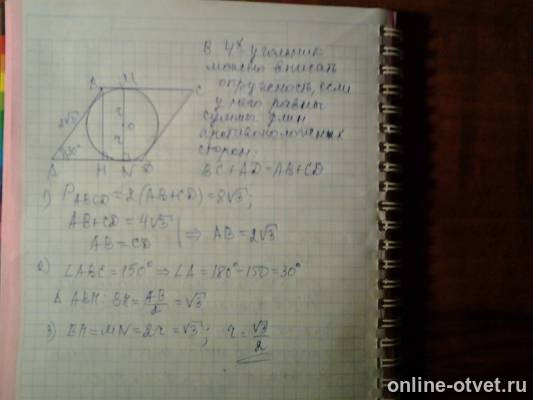 В 4х угольник
можно вписать
окружность, если
у него равны
суммы длин
противоположных
сторон:
BC + AD = AB + CD
B M C
2√3
r
O
r
30°
A H N D
1) P ABCD = 2(AB + CD) = 8√3;
AB + CD = 4√3
AB = CD | ⇒ AB = 2√3
2) ∠ABC = 150° ⇒ ∠A = 180° - 150 = 30°
Δ ABH: BH = AB/2 = √3
3) BH = MN = 2r = √3; r = √3/2
online-otvet.ru